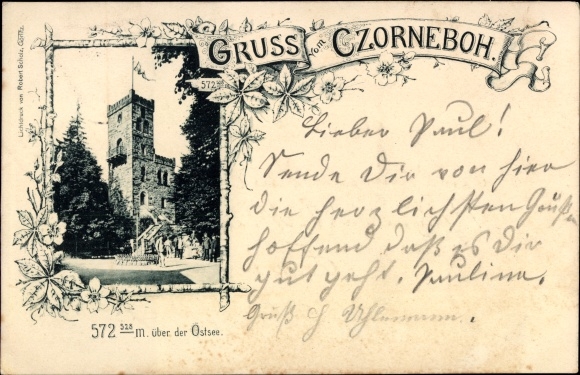 GRUSS vom CZORNEBOH.
572
Lichtdruck von Robert Scholz, Görlitz.
Lieber Paul!
Sende Dir von hier
die herzlichsten Grüße
hoffend daß es Dir
gut geht. Paulina.
Gruß
572 528 m. über der Ostsee.